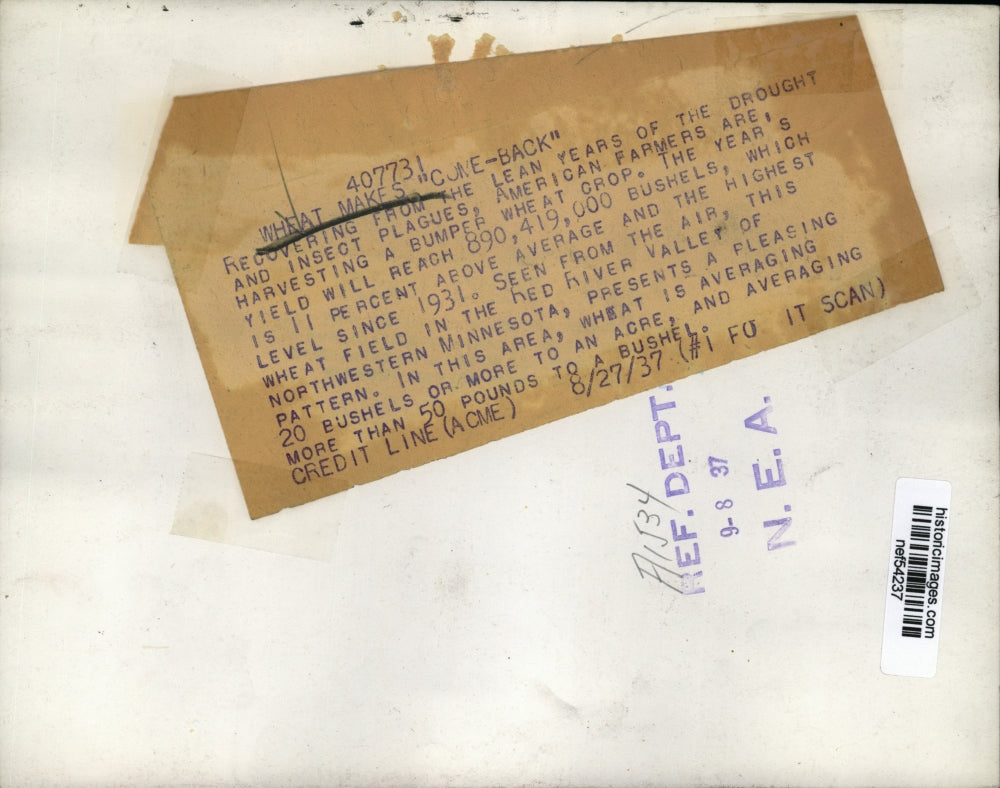 407731
WHEAT MAKES "COME-BACK"
RECOVERING FROM THE LEAN YEARS OF THE DROUGHT
AND INSECT PLAGUES, AMERICAN FARMERS ARE,
HARVESTING A BUMPER WHEAT CROP. THE YEAR'S
YIELD WILL REACH 890,419,000 BUSHELS, WHICH
IS 11 PERCENT ABOVE AVERAGE AND THE HIGHEST
LEVEL SINCE 1931. SEEN FROM THE AIR, THIS
WHEAT FIELD IN THE RED RIVER VALLEY OF
NORTHWESTERN MINNESOTA, PRESENTS A PLEASING
PATTERN. IN THIS AREA, WHEAT IS AVERAGING
20 BUSHELS OR MORE TO AN ACRE, AND AVERAGING
MORE THAN 50 POUNDS TO A BUSHEL.
CREDIT LINE (ACME) 8/27/37 (#1 FO IT SCAN)
REF. DEPT.
9-8 37
N. E. A.
historicimages.com
nef54237